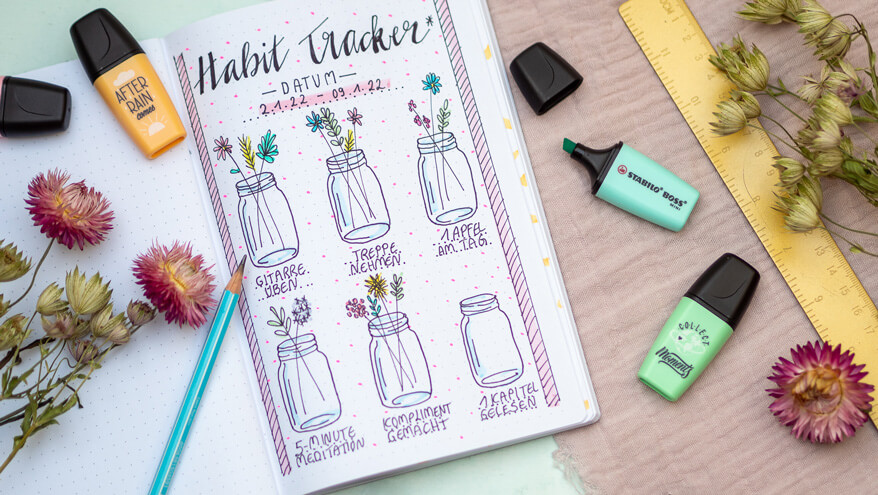 Habit Tracker*
DATUM
2.1.22 09.1.22
GITARRE
ÜBEN
TREPPE
NEHMEN
1 APFEL
AM TAG
5-MINUTE
MEDITATION
KOMPLIMENT
GEMACHT
1 KAPITEL
GELESEN
AFTER
RAIN
comes
STABILO BOSS
MINI
COLLECT
Moments